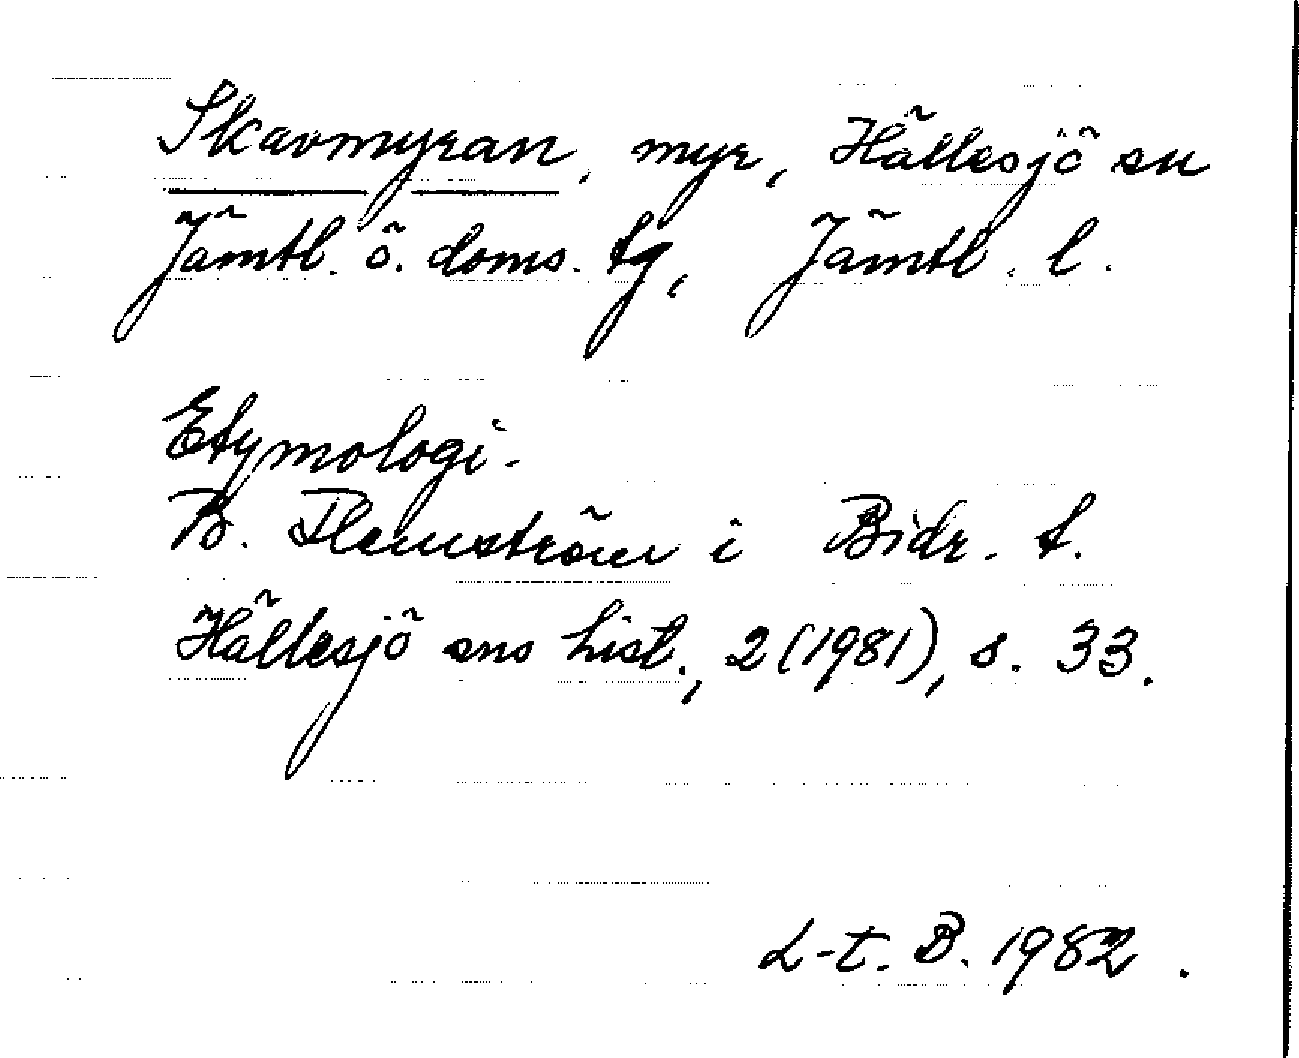 Skavmyran, myr, Hällesjö sn
Jämtl. ö. doms. tg, Jämtl. l.
Etymologi.
B. Flemström i Bidr. t.
Hällesjö sns hist., 2 (1981), s. 33.
L-t. B. 1982.